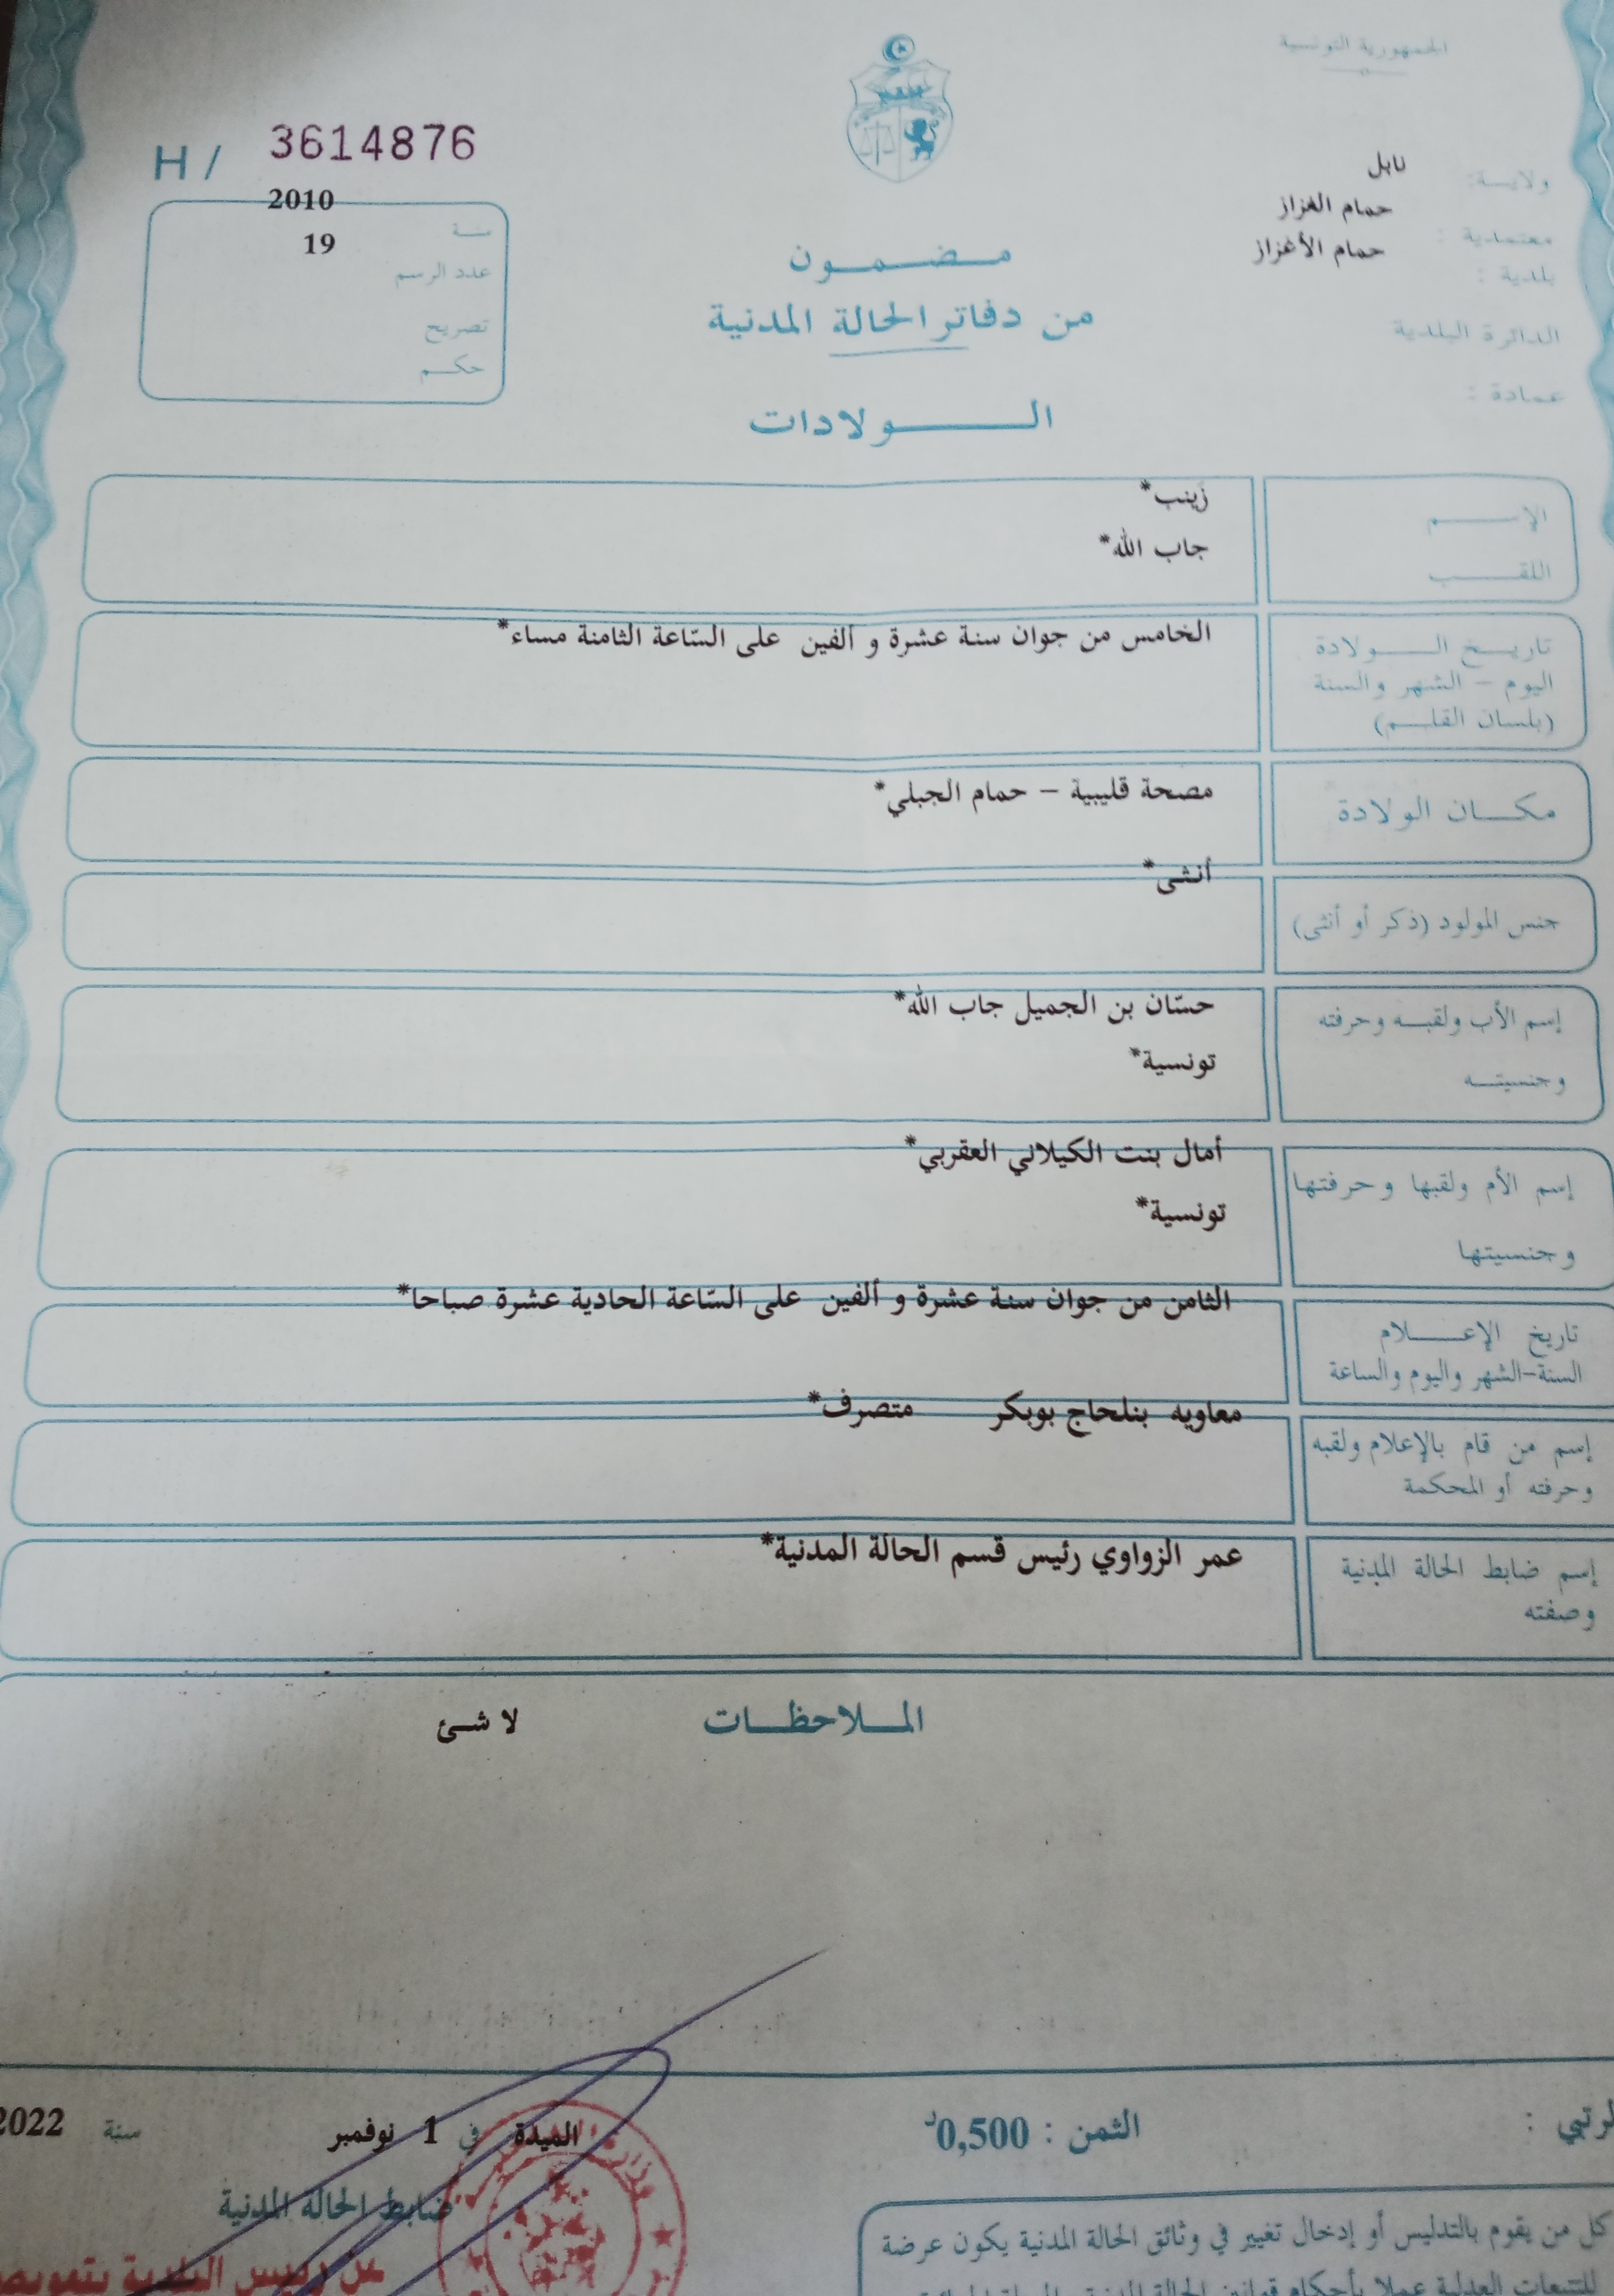 الجمهورية التونسية
H / 3614876
ولايـة: نابل
معتمدية : حمام الغزاز
بلدية : حمام الأغزاز
الدائرة البلدية
عمادة :
سنة 2010
عدد الرسم 19
تصريح
حكم
مضمون
من دفاتر الحالة المدنية
الولادات
الإسم زينب*
اللقب جاب الله*
تاريخ الولادة
اليوم – الشهر والسنة
(بلسان القلم)
الخامس من جوان سنة عشرة و ألفين على السّاعة الثامنة مساء*
مكان الولادة مصحة قليبية – حمام الجبلي*
جنس المولود (ذكر أو أنثى) أنثى*
إسم الأب ولقبه وحرفته حسّان بن الجميل جاب الله*
وجنسيته تونسية*
إسم الأم ولقبها وحرفتها أمال بنت الكيلاني العقربي*
وجنسيتها تونسية*
تاريخ الإعلام
السنة-الشهر واليوم والساعة
الثامن من جوان سنة عشرة و ألفين على السّاعة الحادية عشرة صباحا*
إسم من قام بالإعلام ولقبه
وحرفته أو المحكمة
معاويه بنلحاج بوبكر متصرف*
إسم ضابط الحالة المدنية
وصفته
عمر الزواوي رئيس قسم الحالة المدنية*
الملاحظات لا شئ
الثمن : 0,500د
الميدة في 1 نوفمبر سنة 2022
ضابط الحالة المدنية
عن رئيس البلدية
كل من يقوم بالتدليس أو إدخال تغيير في وثائق الحالة المدنية يكون عرضة
للتتبعات العدلية عملا بأحكام قوانين الحالة المدنية